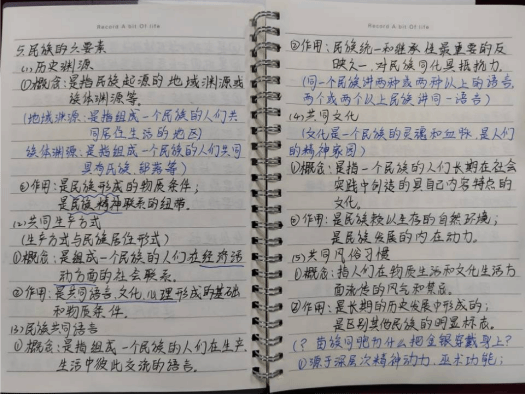 Record A bit Of life
5.民族的六要素
(1)历史渊源
①概念:是指民族起源的地域渊源或
族体渊源等。
(地域渊源:是指组成一个民族的人们共
同居住生活的地区)
族体渊源:是指组成一个民族的人们共同
具有民族、部落等)
②作用:是民族形成的物质条件;
是民族精神联系的纽带。
(2)共同生产方式
(生产方式与民族居住形式)
①概念:是组成一个民族的人们在经济活
动方面的社会联系。
②作用:是共同语言、文化、心理形成的基础
和物质条件。
(3)民族共同语言
①概念:是指组成一个民族的人们在生产、
生活中彼此交流的语言。
Record A bit Of life
②作用:民族统一和继承性最重要的反
映之一,对民族同化具抵抗力。
(同一个民族讲两种或两种以上的语言,
两个或两个以上民族讲同一语言)
(4)共同文化
(文化是一个民族的灵魂和血脉,是人们
的精神家园)
①概念:是指一个民族的人们长期在社会
实践中创造的具自己内容特点的
文化。
②作用:是民族赖以生存的自然环境;
是民族发展的内在动力。
(5)共同风俗习惯
①概念:指人们在物质生活和文化生活方
面流传的风气和禁忌。
②作用:是长期的历史发展中形成的;
是区别其他民族的明显标志。
(?苗族同胞为什么把金银穿戴身上?
①源于深层次精神动力,巫术功能;